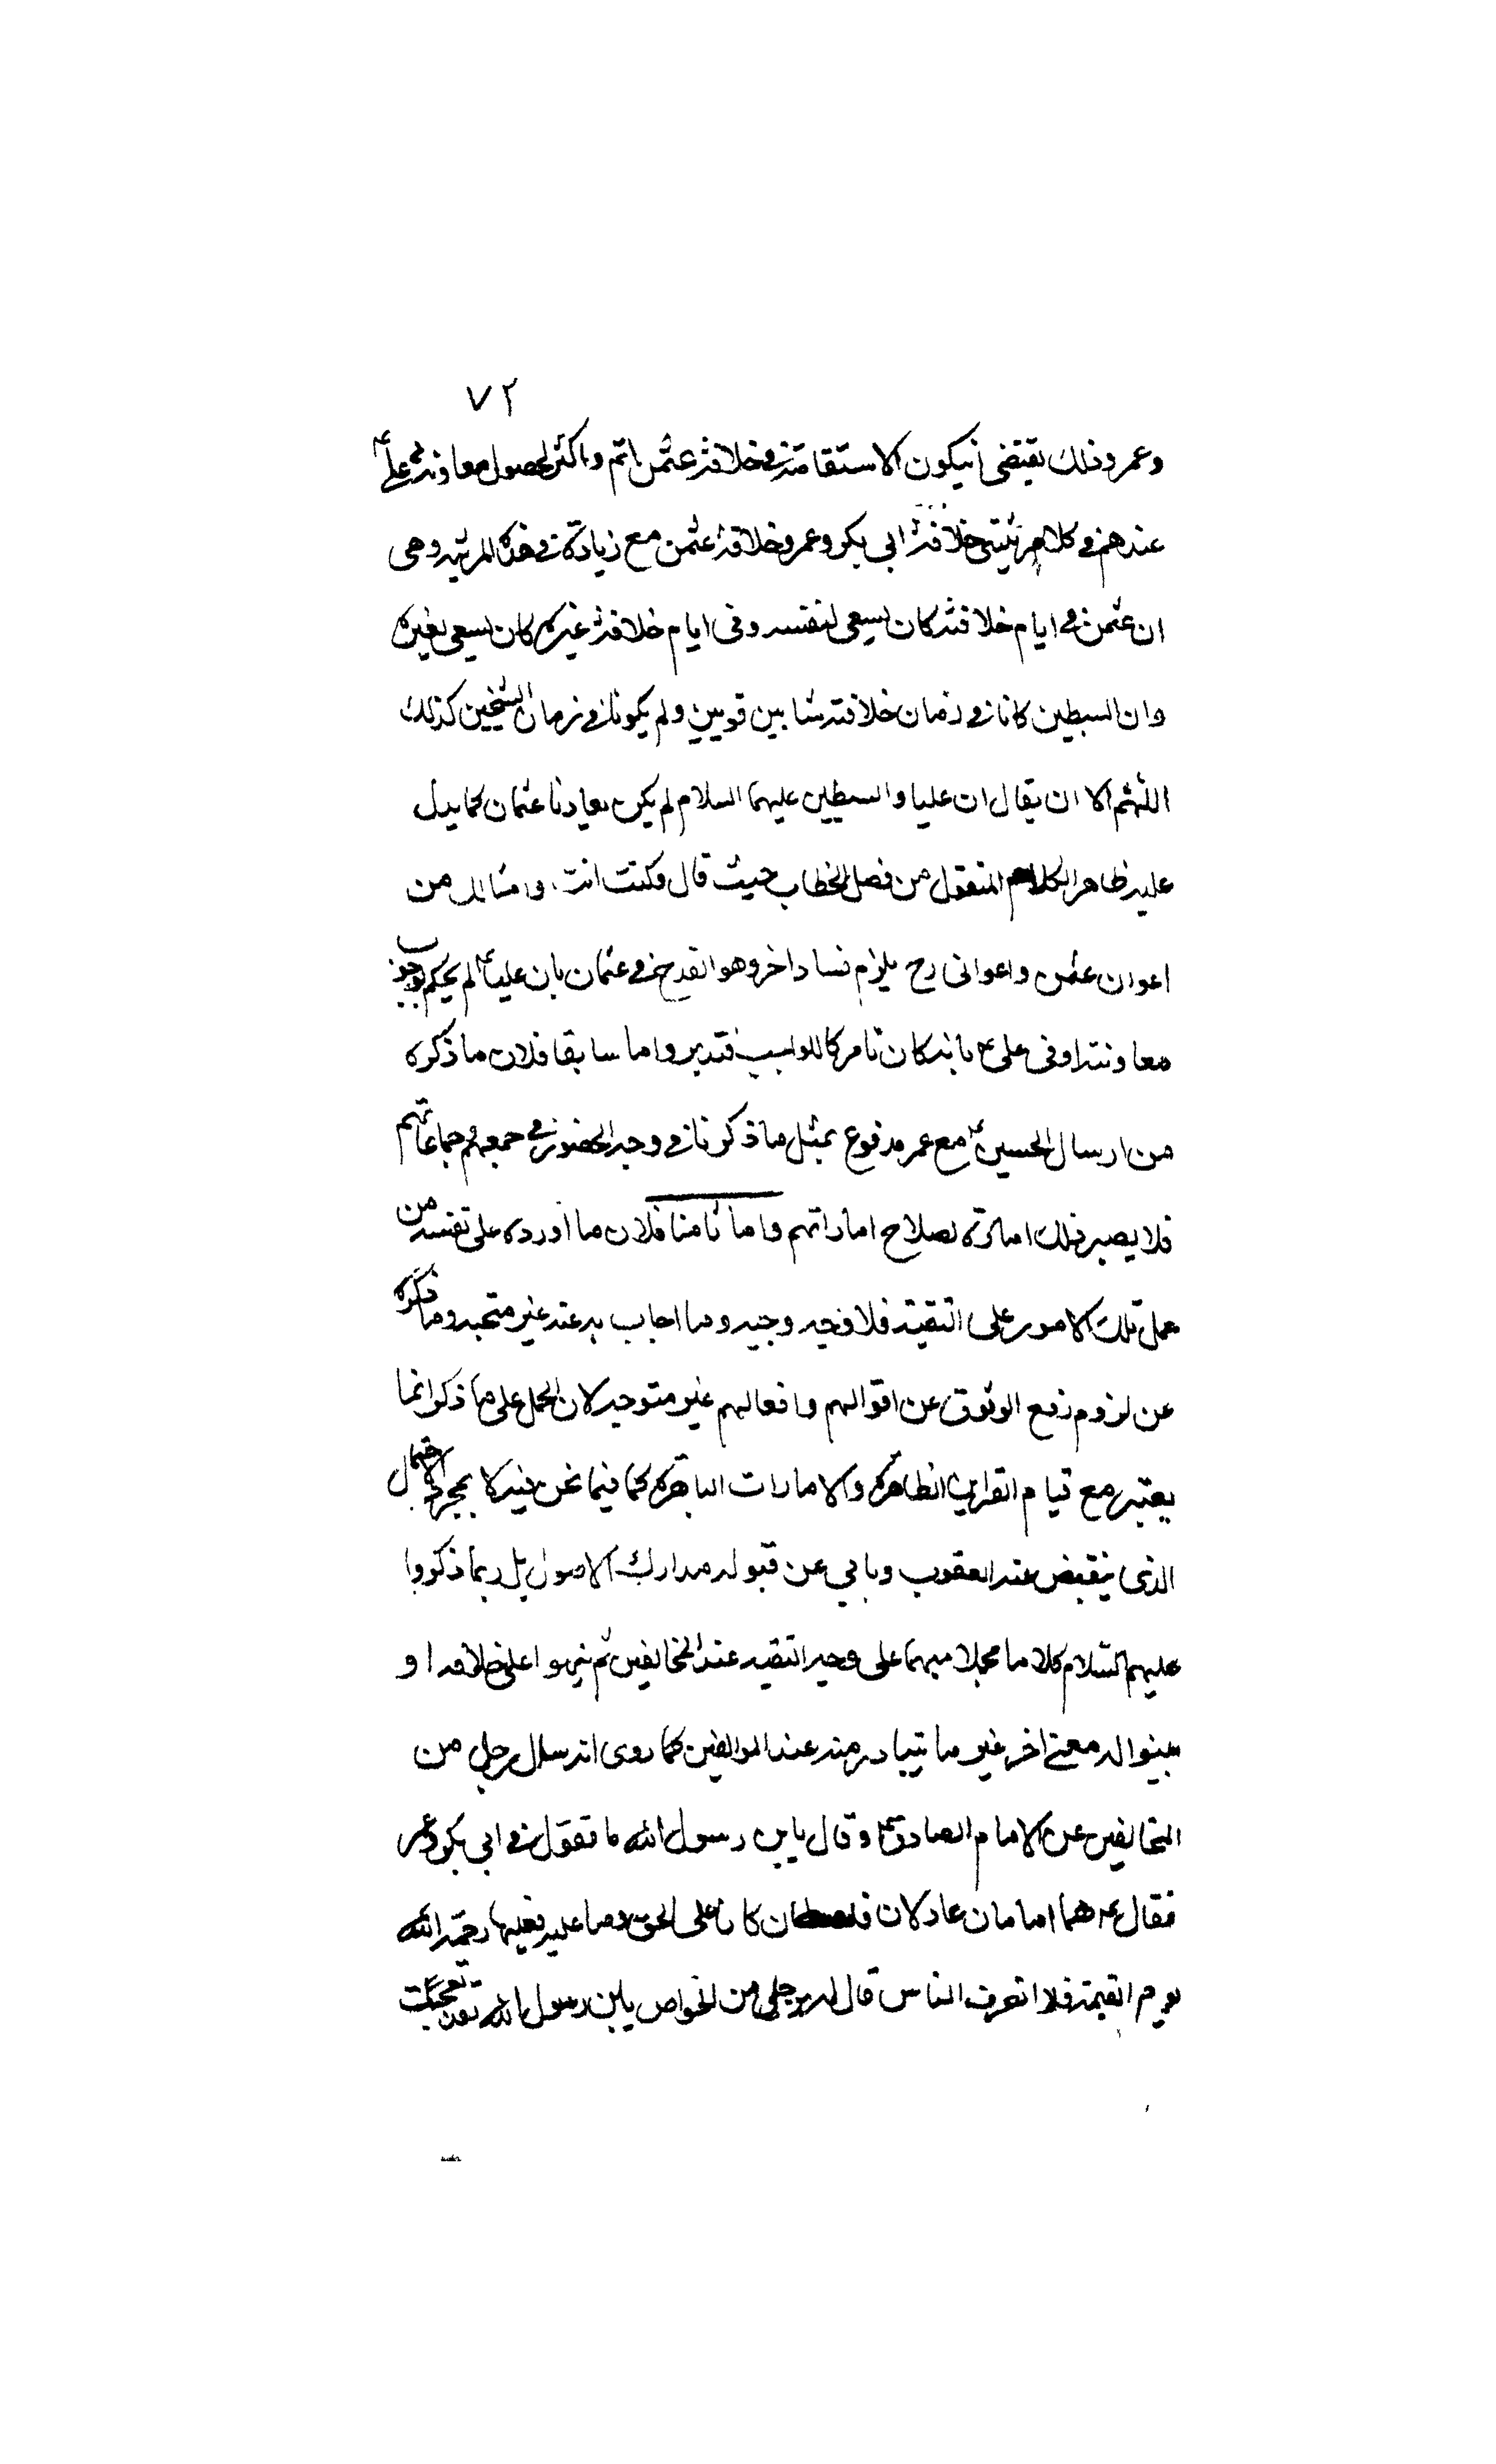 ٧٢
وعمر وذلك يقتضى انيكون الاستقامة فى خلافة عثمن اتم واكثر لحصول معاونة على ع
عندهم فى كلام خلافة ابى بكر وعمر وخلافة عثمن مع زيادة فى هذه المرتبه وهى
ان عثمن فى ايام خلافته كان يسعى لنفسه وفى ايام خلافة غيره كان يسعى لغيره
وان السبطين كانا فى زمان خلافته شابين قويين ولم يكونا فى زمان الشيخين كذلك
اللهم الا ان يقال ان عليا والسبطين عليهما السلام لم يكن عثمان كما يدل
عليه ظاهر الكلام المنقول من فصل الخطاب حيث قال وكنت انت وامثالك من
اعوان عثمن واعوانى وح يلزم فساد اخر وهو القدح فى عثمان بان عليا ع لم يحكم بوجوب
معاونته او فى على ع بانه كان تاركا للواجب فتدبر واما سابقا فلان ما ذكره
من ارسال الحسين ع مع عمر مدفوع بمثل ما ذكرنا فى وجه الحضور فى جمعهم وجماعاتهم
فلا يصير ذلك امارة لصلاح اماراتهم واما ثامنا فلان ما اورده على نفسه من
حمل تلك الامور على التقية فلا وجه وجيه وما اجاب به عنه غير متجه وما ذكره
من لزوم رفع الوثوق عن اقوالهم وافعالهم غير متوجه لان الحمل على ما ذكر انما
يعتبر مع قيام القراين الظاهرة والامارات الباهرة كما فيما نحن فيه لا بمجرد الاحتمال
الذى ينقبض عنه العقول ويابى عن قبوله مدارك الاصول بل ربما ذكروا
عليهم السلام كلاما مجملا مبهما على وجه التقيه عند المخالفين ثم نبهوا على خلافه او
بينوا له معنى اخر غير ما يتبادر منه عند الموالفين كما روى انه سال رجل من
المخالفين عن الامام الصادق ع وقال يابن رسول الله ما تقول فى ابى بكر وعمر
فقال ع هما امامان عادلان قاسطان كانا على الحق وماتا عليه فعليهما رحمة الله
يوم القيمة فلما انصرف الناس قال له رجل من الخواص يابن رسول الله لقد تعجبت